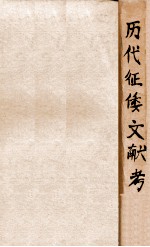 历代征倭文献考